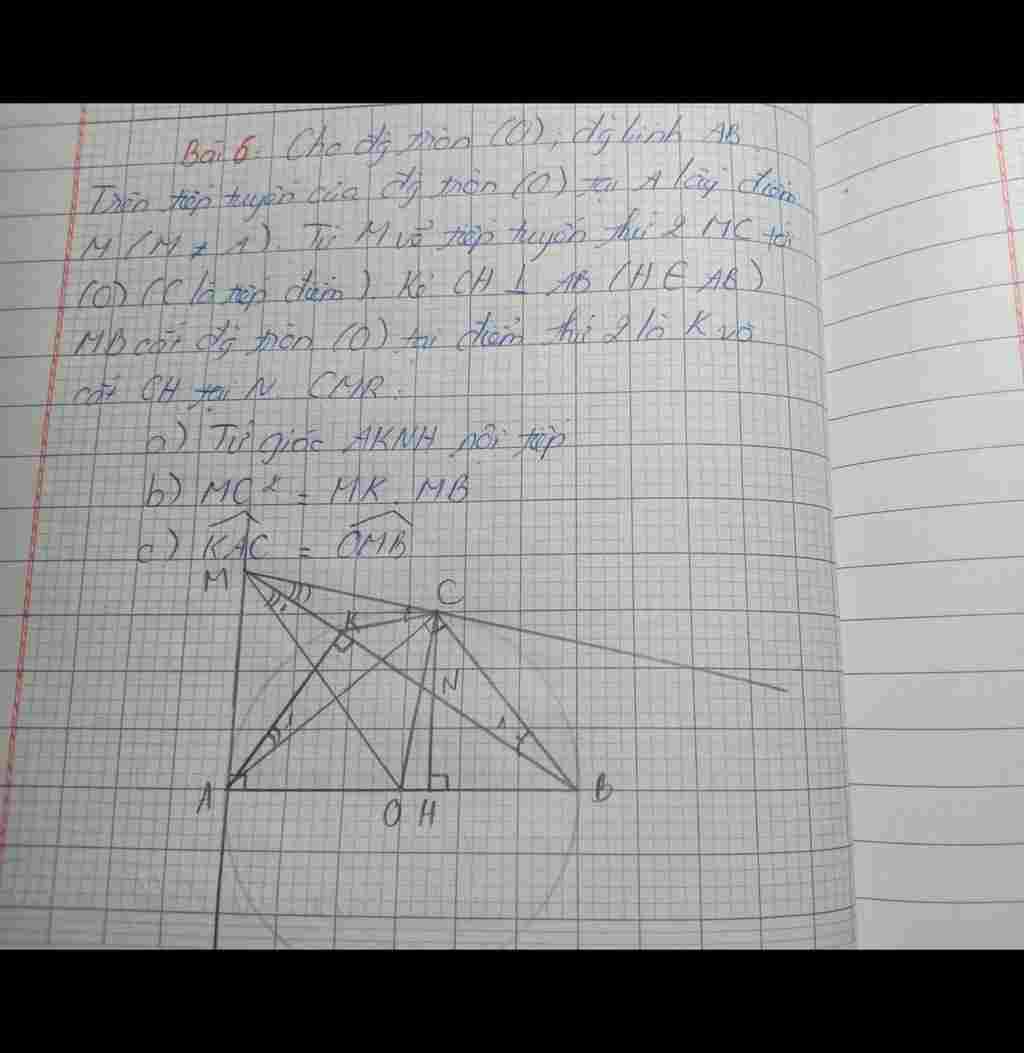 Bài 6. Cho đg tròn (O), đg kính AB.
Trên tiếp tuyến của đg tròn (O) tại A lấy điểm
M (M ≠ A). Từ M vẽ tiếp tuyến thứ 2 MC tới
(O) (C là tiếp điểm). Kẻ CH ⊥ AB (H ∈ AB)
MB cắt đg tròn (O) tại điểm thứ 2 là K và
cắt CH tại N. CMR:
a) Tứ giác AKNH nội tiếp
b) MC² = MK. MB
c) \widehat{KAC} = \widehat{OMB}
M
C
K
N
A
O H
B